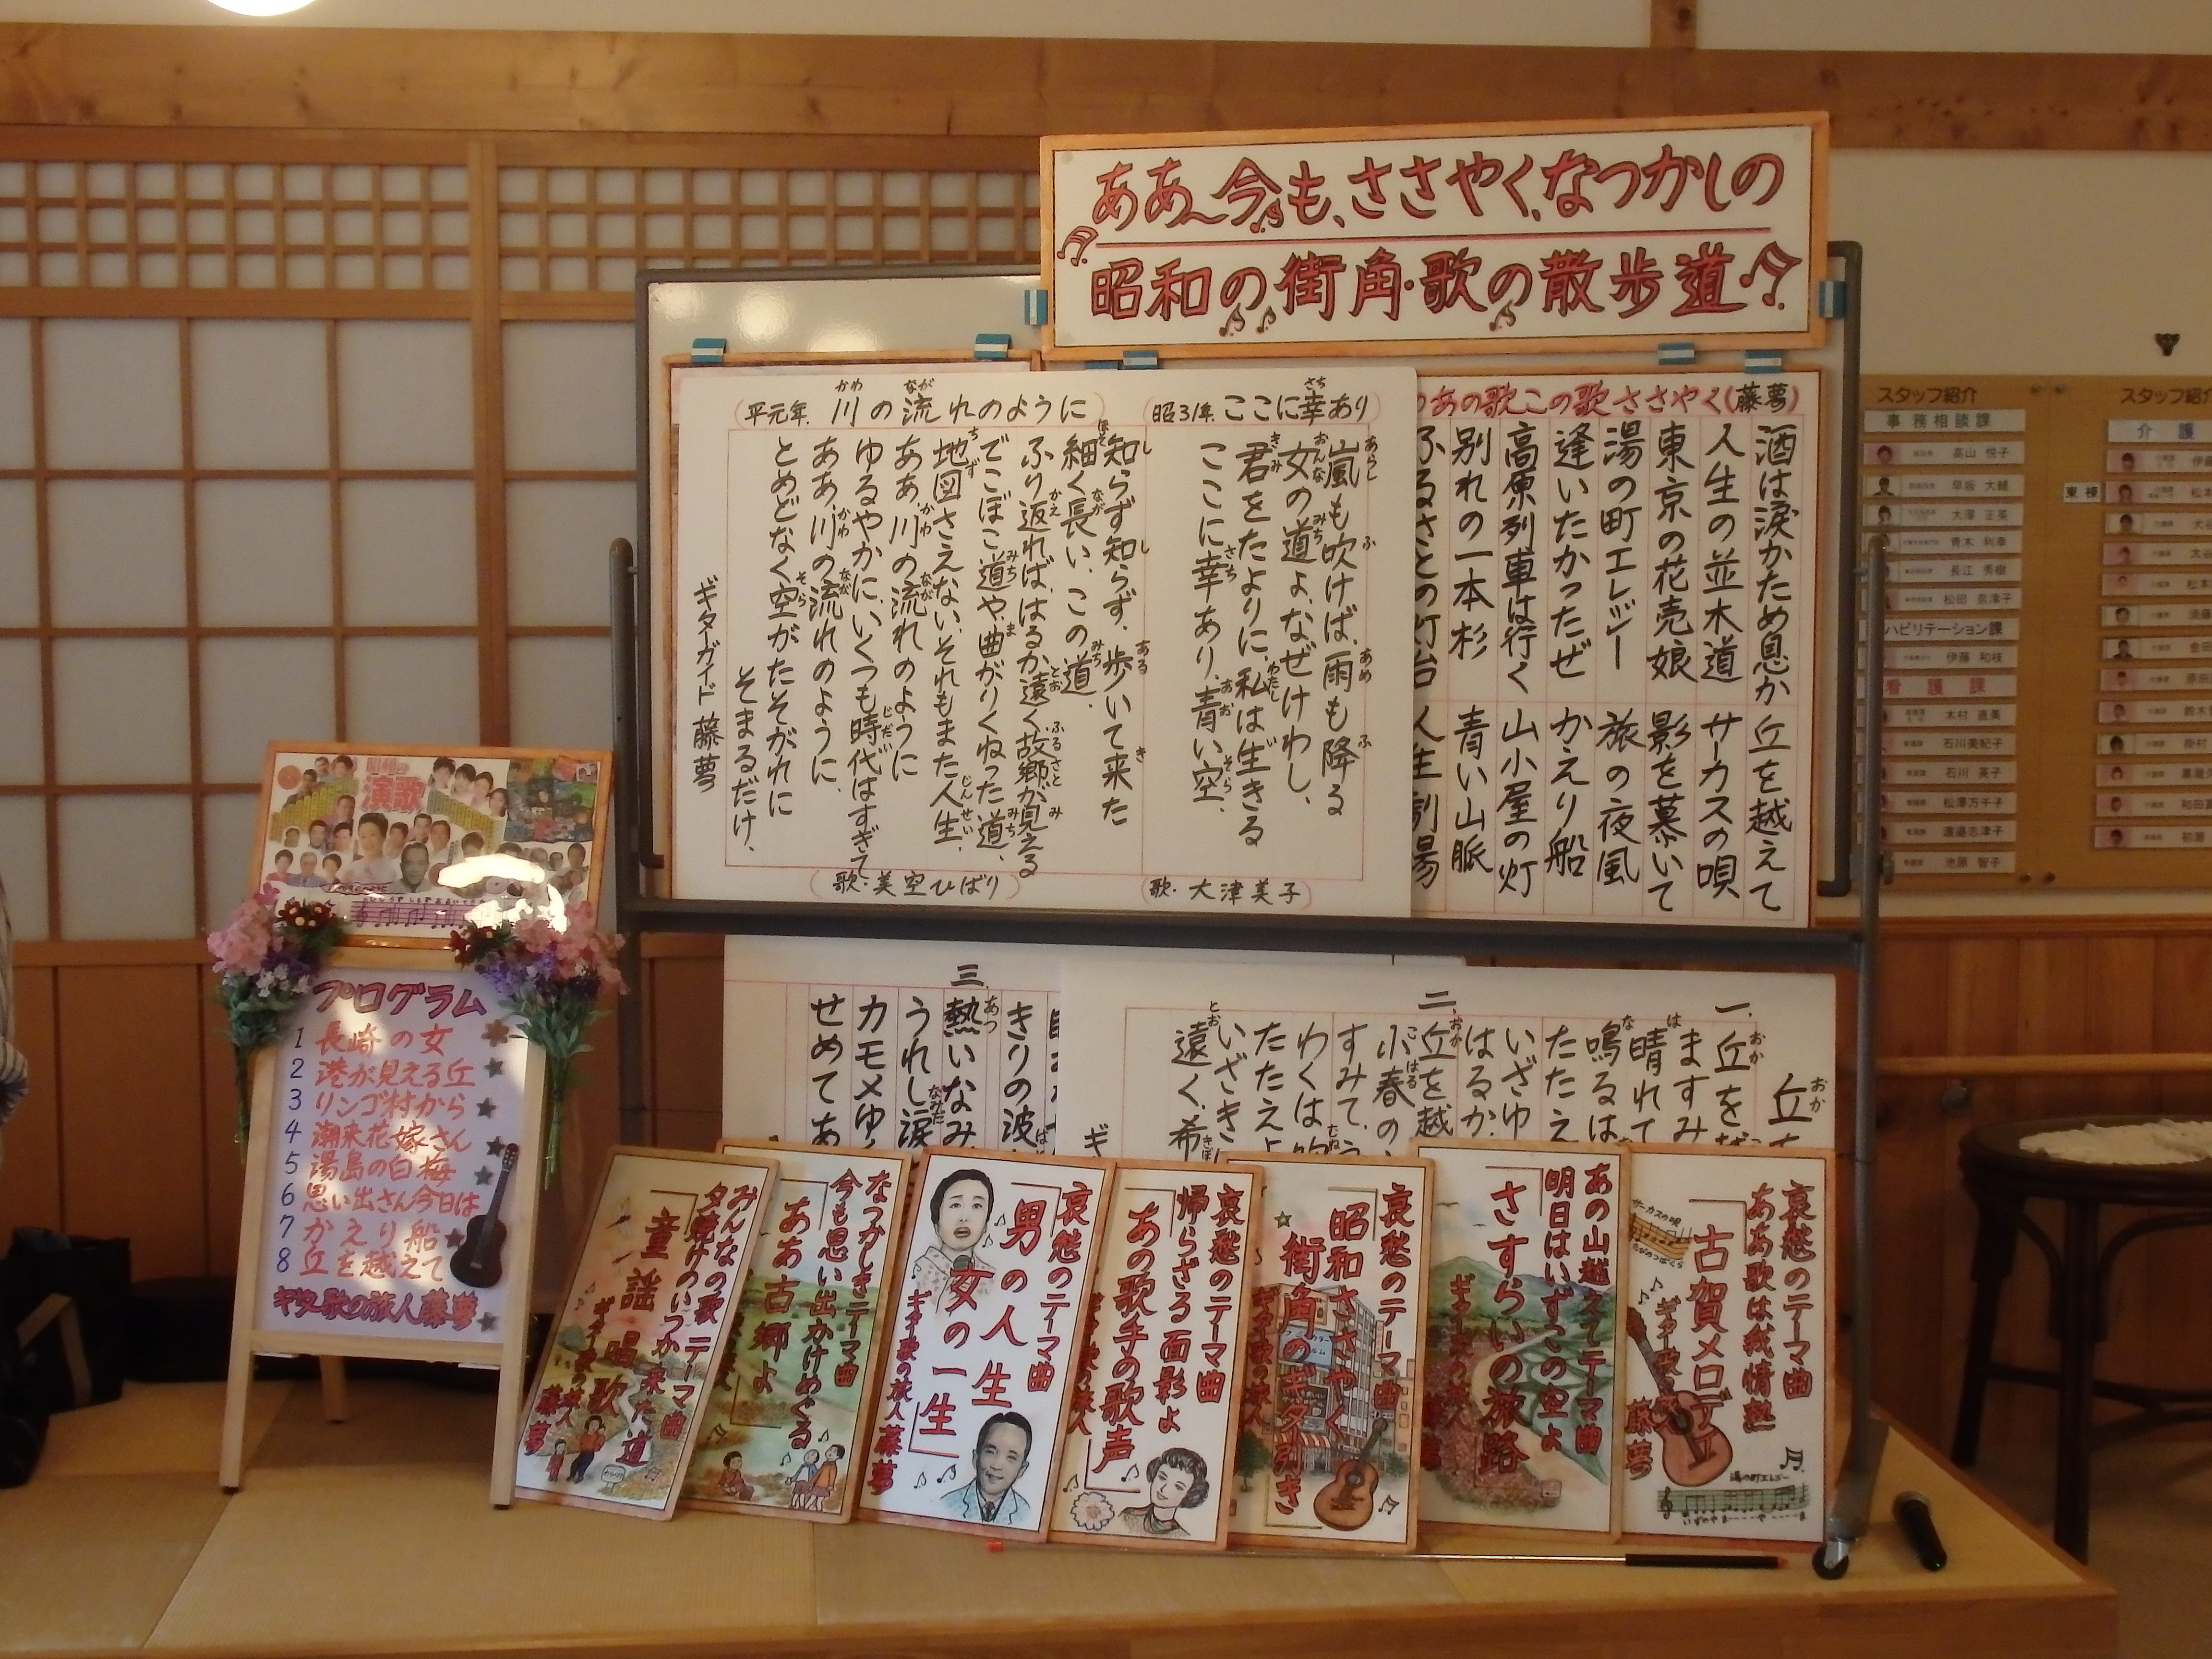 ああ〜今も、ささやく、なつかしの
昭和の街角・歌の散歩道
あの歌この歌ささやく(藤夢)
酒は涙かため息か 丘を越えて
人生の並木道 サーカスの唄
東京の花売娘 影を慕いて
湯の町エレジー 旅の夜風
逢いたかったぜ かえり船
高原列車は行く 山小屋の灯
別れの一本杉 青い山脈
ふるさとの灯台 人生劇場
(昭31年. ここに幸あり)
嵐も吹けば、雨も降る
女の道よ、なぜけわし、
君をたよりに、私は生きる
ここに幸あり、青い空、
(歌. 大津美子)
(平元年. 川の流れのように)
知らず知らず、歩いて来た
細く長い、この道、
ふり返れば、はるか遠く故郷が見える
でこぼこ道や、曲がりくねった道、
地図さえない、それもまた人生、
ああ、川の流れのように
ゆるやかに、いくつも時代はすぎて
ああ、川の流れのように、
とめどなく空がたそがれに
そまるだけ、
(歌:美空ひばり)
ギターガイド 藤夢
昭和の
演歌
プログラム
1 長崎の女
2 港が見える丘
3 リンゴ村から
4 潮来花嫁さん
5 湯島の白梅
6 思い出さん今日は
7 かえり船
8 丘を越えて
ギター歌の旅人藤夢
丘
一、丘を
ますみ
晴れて
鳴るは
たたえ
いざゆ
はるか
二、丘を越
小春の
すみて、
わくは
たたえよ
いざきけ
遠く、希
きりの波
三、熱いなみ
うれし涙
カモメゆ
せめてあ
みんなの歌 テーマ曲
夕焼けのいつか来た道
童謡唱歌
ギター歌の旅人
藤夢
なつかしきテーマ曲
今も思い出かけめぐる
ああ古郷よ
哀愁のテーマ曲
男の人生
女の一生
ギター歌の旅人藤夢
哀愁のテーマ曲
帰らざる面影よ
あの歌手の歌声
哀愁のテーマ曲
昭和ささやく
街角のギター引き
ギター歌の旅人
あの山越えてテーマ曲
明日はいずこの空よ
さすらいの旅路
ギター歌の旅人
哀愁のテーマ曲
ああ歌は我情熱
古賀メロディ
ギター歌
藤夢
サーカスの唄
湯の町エレジー
スタッフ紹介
事務相談課
高山 悦子
早坂 大輔
大澤 正英
青木 利幸
長江 秀樹
松田 奈津子
ハビリテーション課
伊藤 和枝
看護課
木村 直美
石川美紀子
石川 英子
松澤万千子
渡邉志津子
池原 智子
スタッフ紹介
介護
東棟